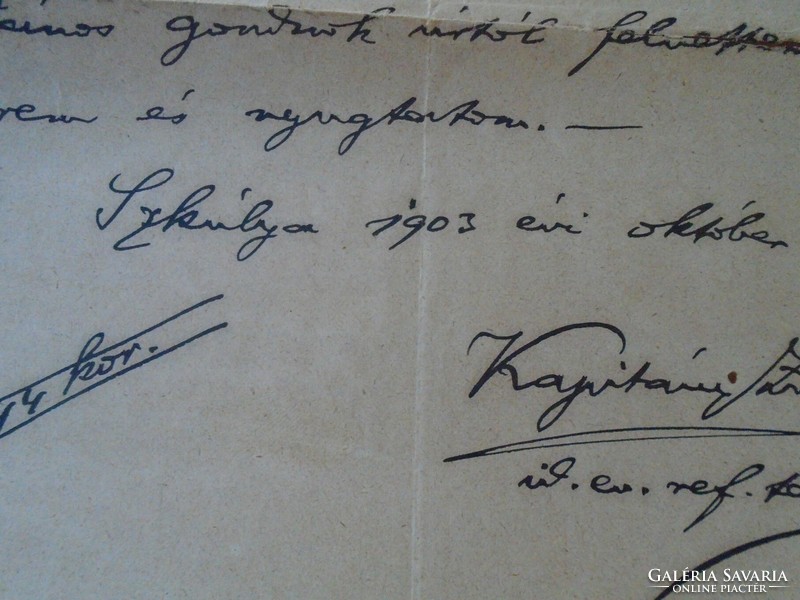 János gondnok úrtól felvettem
rem és nyugtatom. —
Szkulya 1903 évi október
14 kor.
Kapitány
id. ev. ref. ta
GALÉRIA SAVARIA
ONLINE PIACTÉR